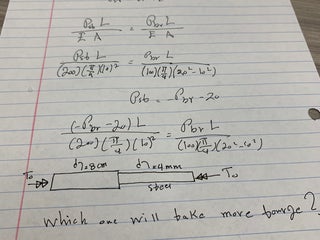 Pst L / E A = Pbr L / E A
Pstb L / (200)(π/4)(10)² = Pbr L / (100)(π/4)(20²-10²)
Pstb = -Pbr - 20
(-Pbr - 20) L / (200)(π/4)(10)² = Pbr L / (100)(π/4)(20²-10²)
d1=8cm d1=4mm
To To
steel
which one will take more torque?